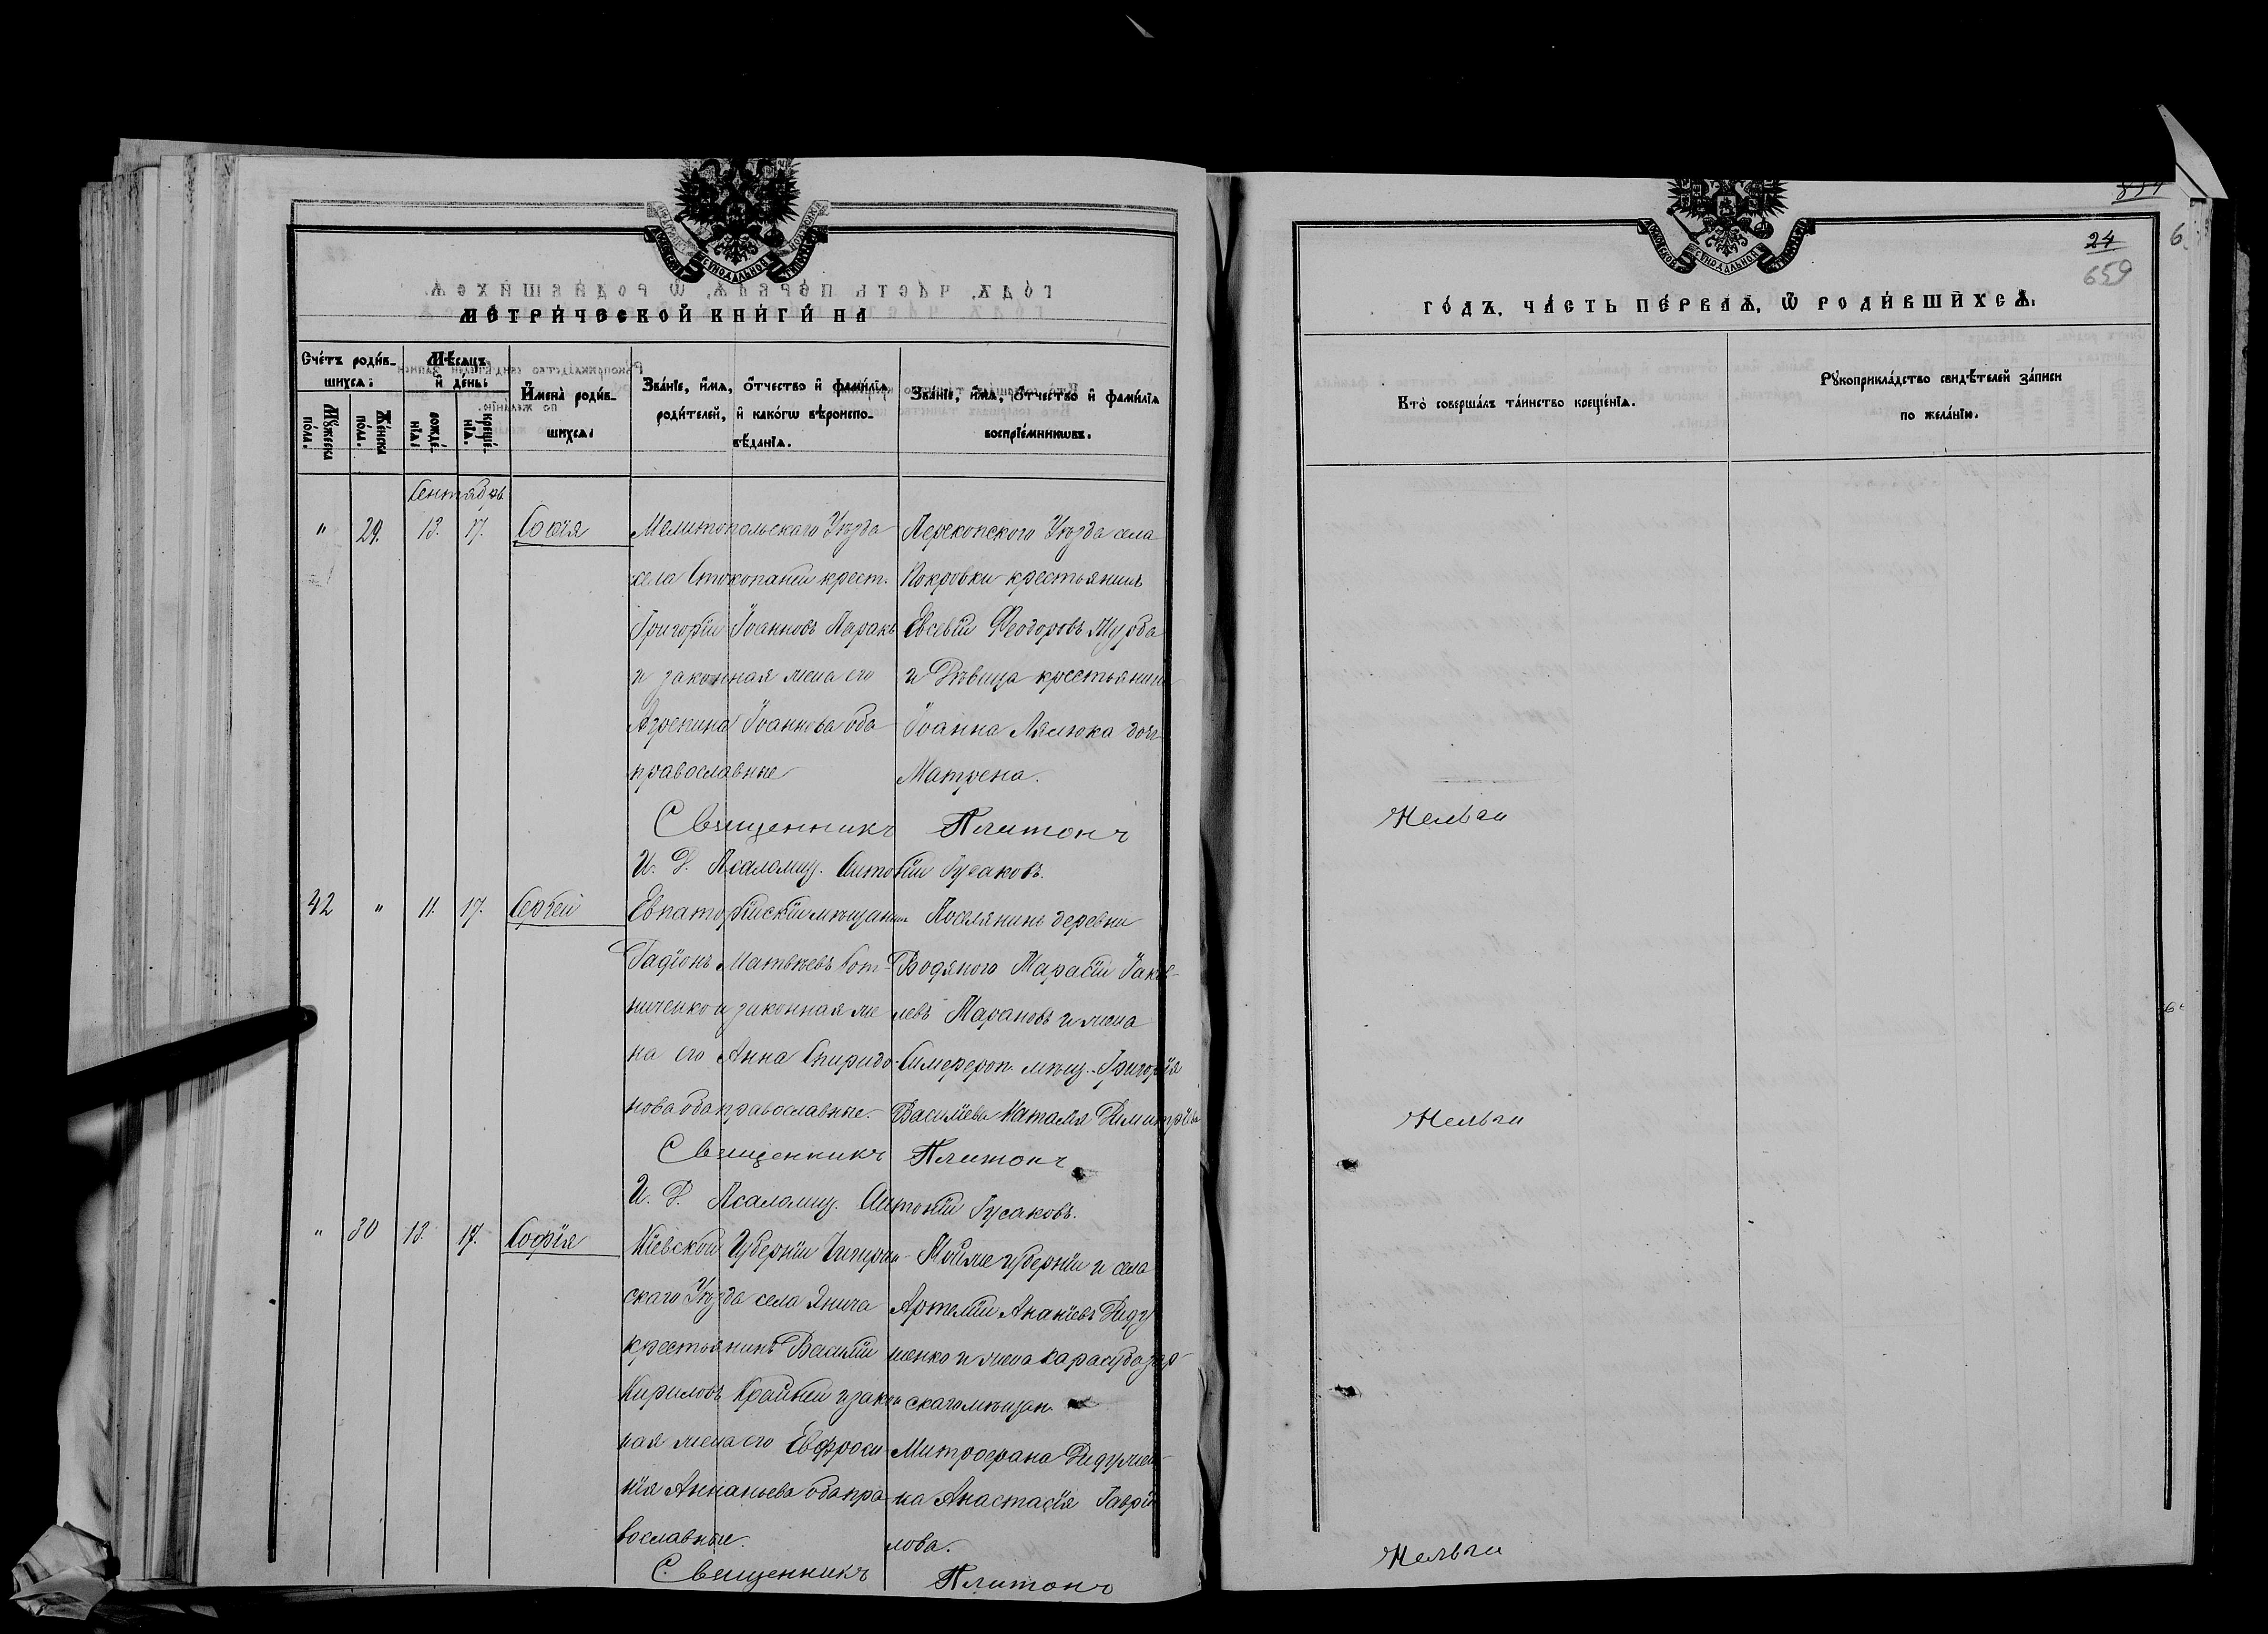 МЕТРИЧЕСКОЙ КНИГИ НА
Счетъ родив-
шихся:
Мѣсяцъ
и день:
Мужеска
пола.
Женска
пола.
рожде-
нія:
креще-
нія.
Имена родив-
шихся:
Званіе, имя, отчество и фамилія
родителей, и какогѡ вѣроиспо-
вѣданія.
Званіе, имя, отчество и фамилія
воспріемникѡвъ.
Сентябрь
" 29. 13. 17. Софія
Мелитопольскаго Уѣзда
села Стокопани крест.
Григорій Іоанновъ
и законная жена его
Іоаннова оба
православные
Перекопского Уѣзда села
Покровки крестьянинъ
Евсевій Феодоровъ
и Дѣвица крестьянина
Іоанна дочь
Матрена.
Священникъ Платонъ Желваи
И. Д. Псаломщ. Антоній Гусаковъ.
42 " 11. 17. Сергей
Евпаторійскій мѣщанин
Родіонъ Матвѣевъ Кот-
ниченко и законная же
на его Анна Спиридо-
нова оба православные.
Поселянинъ деревни
Водяного Тарасій Іаков-
левъ Тарановъ и жена
Симфероп. мѣщ. Григорія
Васильева Наталія Димитріева
Священникъ Платонъ Желваи
И. Д. Псаломщ. Антоній Гусаковъ.
" 30 13. 17. Софія
Кіевской Губерніи Чигирин-
скаго Уѣзда села Янича
крестьянинъ Василій
Кириловъ Крайній и закон
ная жена его Евфроси-
нія Ананьева оба пра-
вославные.
Тойже губерніи и села
Артемій Ананіевъ Диду
шенко и жена Карасубазар-
скаго мѣщан.
Митрофана
на Анастасія Гаври
лова.
Священникъ Платонъ Желваи
24
659
ГОДЪ, ЧАСТЬ ПЕРВАЯ, Ѿ РОДИВШИХСЯ.
Кто совершалъ таинство крещенія.
Рукоприкладство свидѣтелей записи
по желанію.